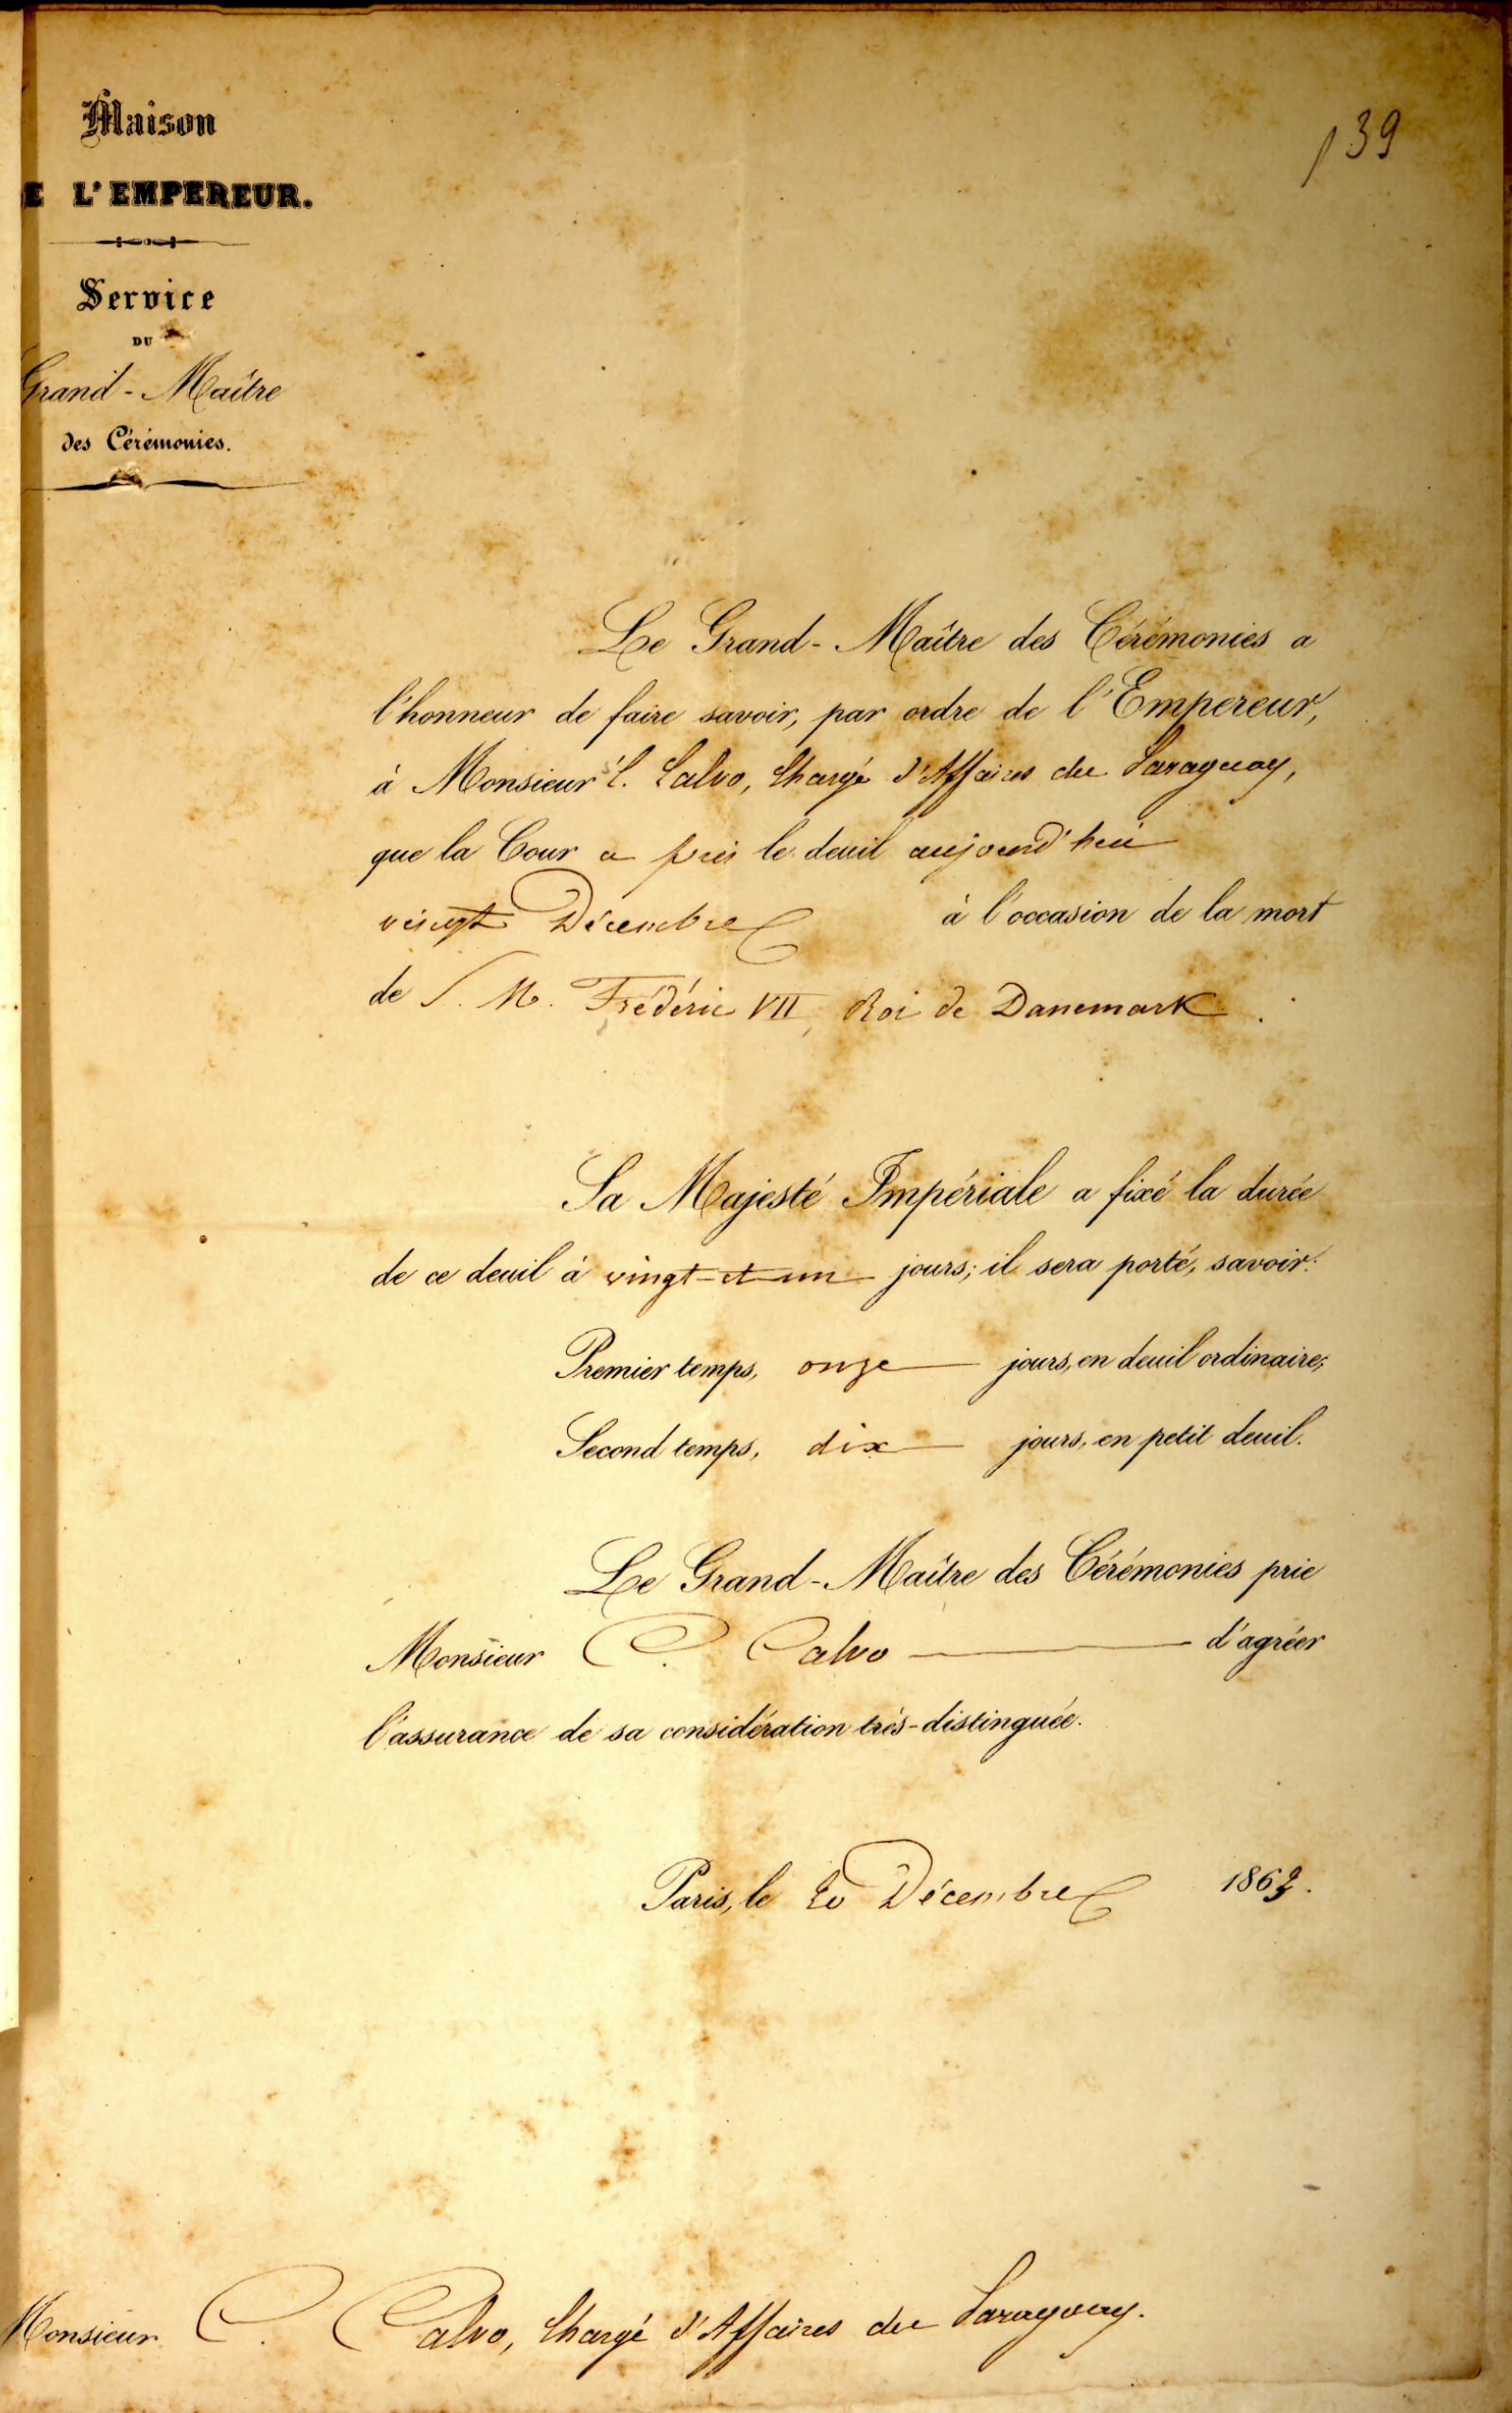 139
Maison
E L'EMPEREUR.
Service
DU
Grand-Maître
des Cérémonies.
Le Grand-Maître des Cérémonies a
l'honneur de faire savoir, par ordre de l'Empereur,
à Monsieur C. Calvo, Chargé d'Affaires du Paraguay,
que la Cour a pris le deuil aujourd'hui
vingt Décembre à l'occasion de la mort
de S. M. Frédéric VII, Roi de Danemark.
Sa Majesté Impériale a fixé la durée
de ce deuil à vingt-et-un jours; il sera porté, savoir:
Premier temps, onze jours, en deuil ordinaire;
Second temps, dix jours, en petit deuil.
Le Grand-Maître des Cérémonies prie
Monsieur C. Calvo d'agréer
l'assurance de sa considération très-distinguée.
Paris, le 20 Décembre 1863.
Monsieur C. Calvo, Chargé d'Affaires du Paraguay.